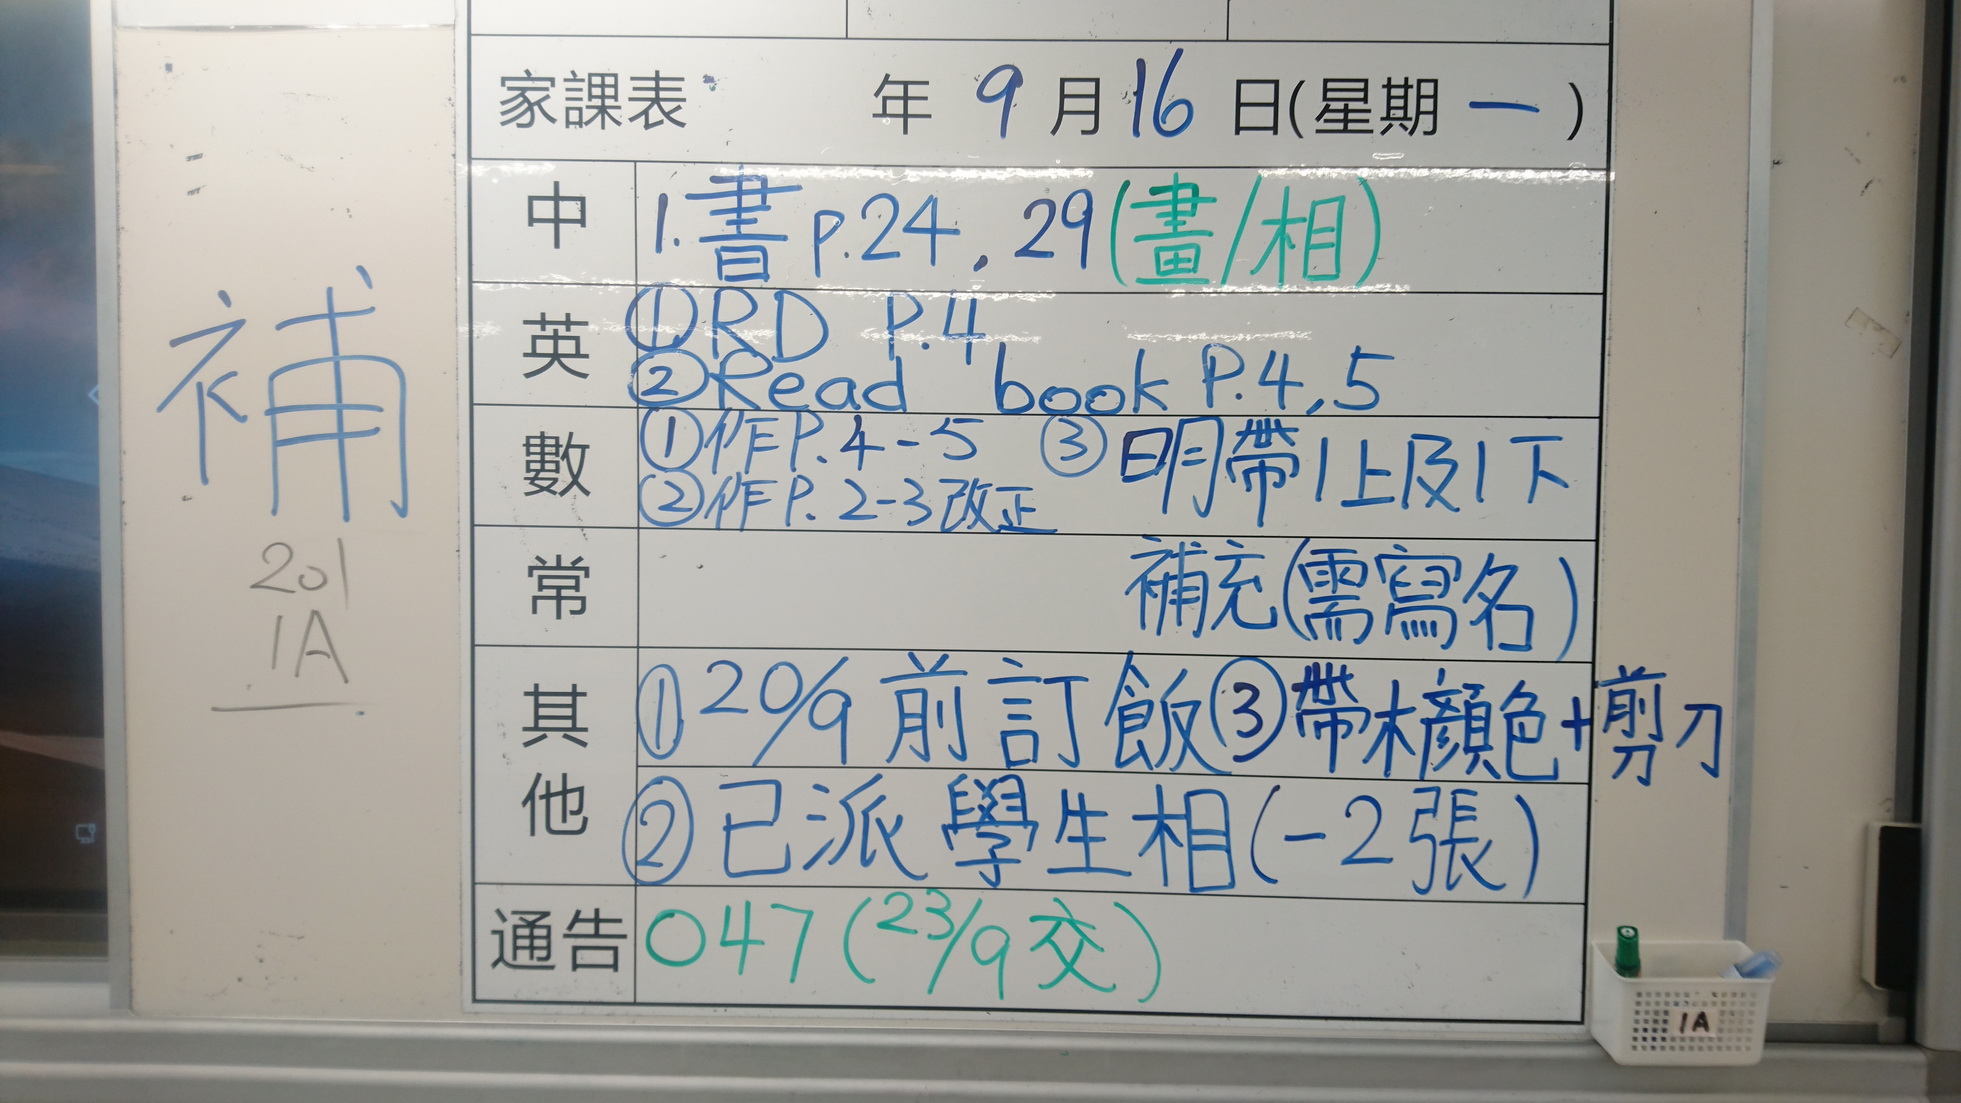 家課表 年 9 月 16 日(星期 一 )
中 1.書 p.24, 29(畫/相)
英 ①RD P.4
②Read book P.4,5
數 ①作P.4-5 ③明帶1上及1下
②作P.2-3改正
常 補充(需寫名)
其他 ①20/9前訂飯③帶木顏色+剪刀
②已派學生相(-2張)
通告 047(23/9交)
補
201
1A
1A